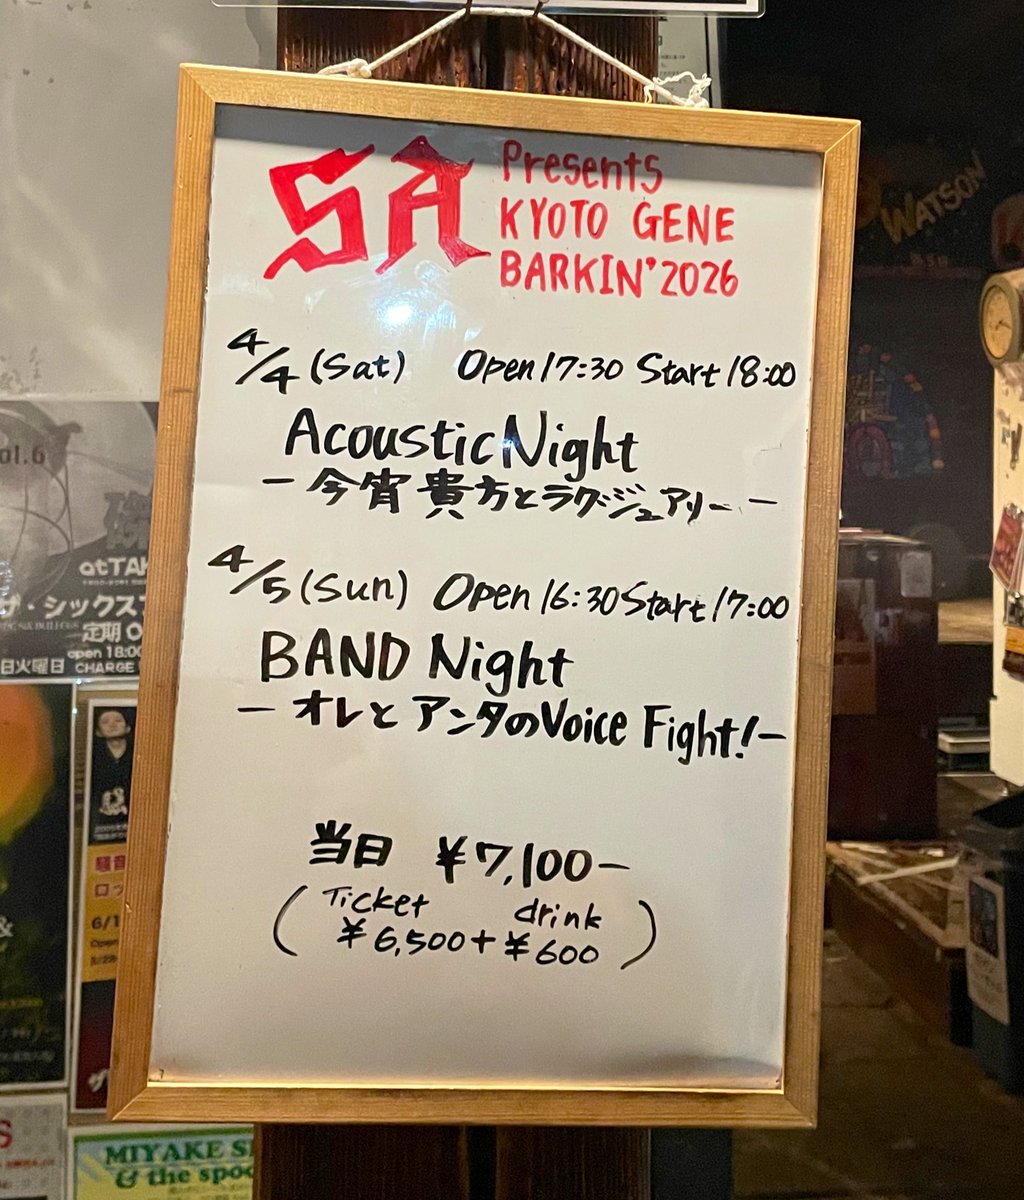 SA Presents
KYOTO GENE
BARKIN'2026
4/4 (Sat) Open 17:30 Start 18:00
Acoustic Night
- 今宵貴方とラグジュアリー -
4/5 (Sun) Open 16:30 Start 17:00
BAND Night
- オレとアンタのVoice Fight! -
当日 ¥7,100-
( Ticket drink )
¥6,500 + ¥600
WATSON
ol.6
atTAK
ザ・シックス
定期
open 18:00
日火曜日 CHARGE
騒音
ロッ
6/1
MIYAKE S
& the spoo